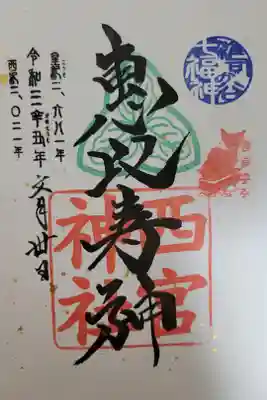 七福神
惠比寿神
西宮
神社
皇紀二、六八一年
令和三辛丑年 文月卅日
西暦二、〇二一年